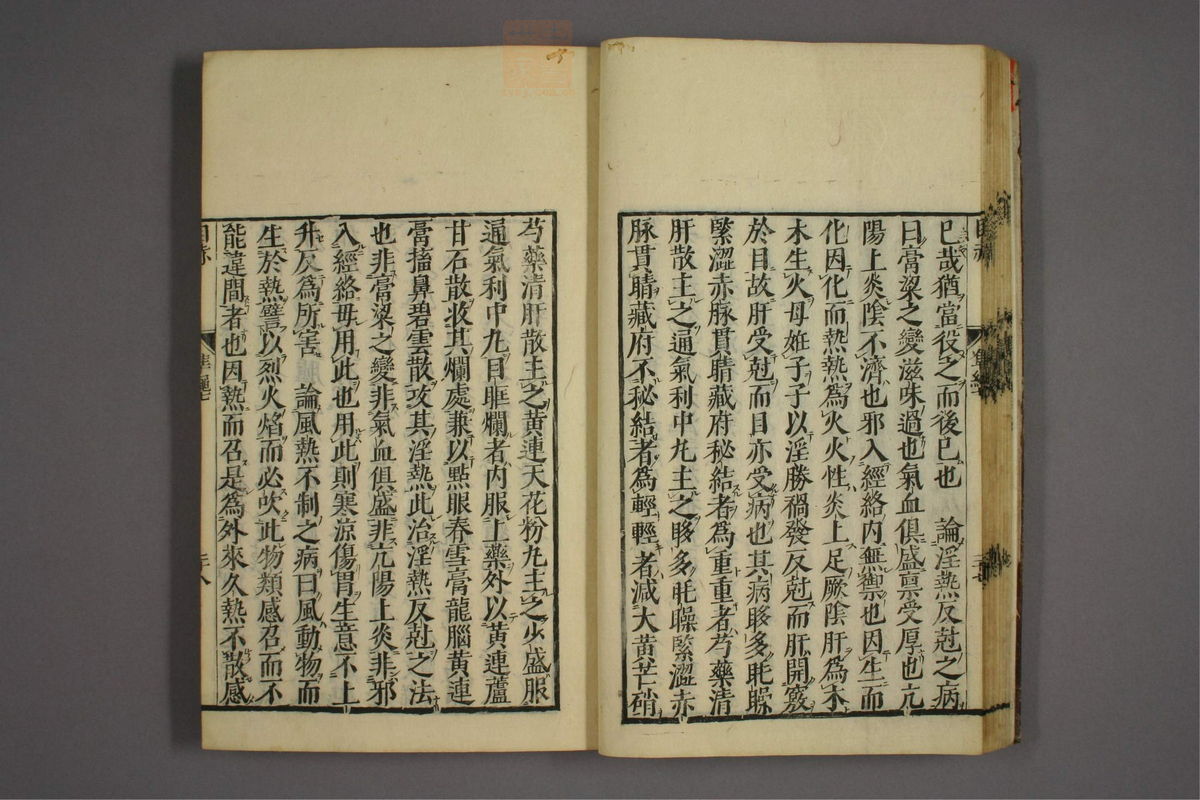 已哉猶當役之而後已也　論淫熱反尅之病
曰膏粱之變滋味過也氣血俱盛禀受厚也亢
陽上炎陰不濟也邪入經絡内無禦也因生而
化因化而熱熱為火火性炎上足厥陰肝為木
木生火母姙子子以淫勝禍發反尅而肝開竅
於目故肝受尅而目亦受病也其病眵多眊矂
緊澀赤脉貫睛藏府秘結者為重重者芍藥清
肝散主之通氣利中丸主之眵多眊矂緊澀赤
脉貫睛藏府不秘結者為輕輕者減大黄芒硝
芍藥清肝散主之黄連天花粉丸主之少盛服
通氣利中丸目眶爛者内服上藥外以黄連蘆
甘石散收其爛處兼以點眼春雪膏龍腦黄連
膏搐鼻碧雲散攻其淫熱此治淫熱反尅之法
也非膏粱之變非氣血俱盛非亢陽上炎非邪
入經絡毋用此也用此則寒涼傷胃生意不上
升反為所害　論風熱不制之病曰風動物而
生於熱譬以烈火焰而必吹此物類感召而不
能違間者也因熱而召是為外來久熱不散感